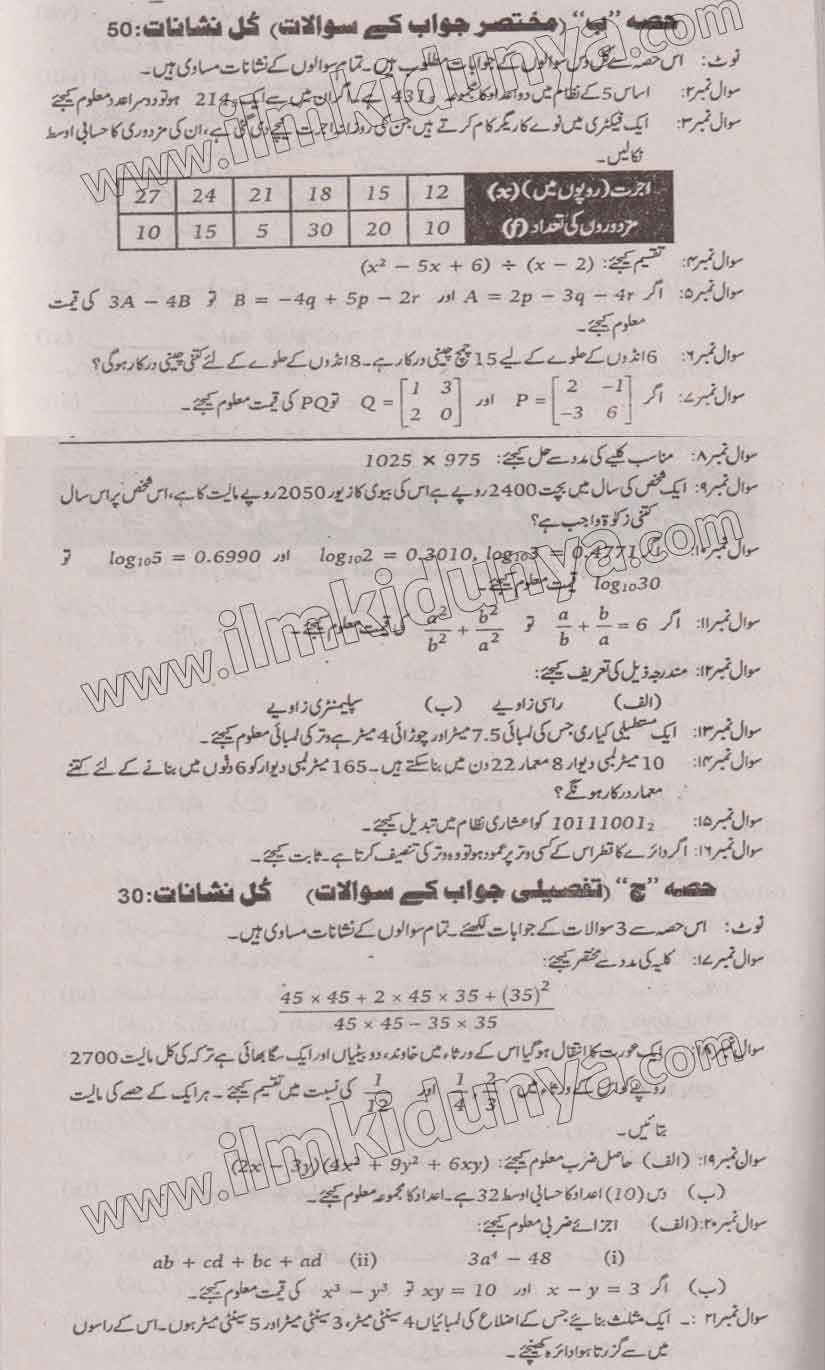 حصہ "ب" (مختصر جواب کے سوالات) کُل نشانات: 50
نوٹ: اس حصہ سے کُل دس سوالوں کے جوابات مطلوب ہیں۔ تمام سوالوں کے نشانات مساوی ہیں۔
سوال نمبر۲: اساس 5 کے نظام میں دو اعداد کا مجموعہ 431 ہے۔ اگر ان میں سے ایک 214 ہو تو دوسرا عدد معلوم کیجئے
سوال نمبر۳: ایک فیکٹری میں نوے کاریگر کام کرتے ہیں جن کی روزانہ اجرت نیچے دی گئی ہے، ان کی مزدوری کا حسابی اوسط
نکالیں۔
اجرت (روپوں میں) (x) 12 15 18 21 24 27
مزدوروں کی تعداد (f) 10 20 30 5 15 10
سوال نمبر۴: تقسیم کیجئے: (x² − 5x + 6) ÷ (x − 2)
سوال نمبر۵: اگر A = 2p − 3q − 4r اور B = −4q + 5p − 2r تو 3A − 4B کی قیمت
معلوم کیجئے۔
سوال نمبر۶: 6 انڈوں کے حلوے کے لیے 15 چمچ چینی درکار ہے۔ 8 انڈوں کے حلوے کے لئے کتنی چینی درکار ہوگی؟
سوال نمبر۷: اگر P = [2 −1; −3 6] اور Q = [1 3; 2 0] تو PQ کی قیمت معلوم کیجئے۔
سوال نمبر۸: مناسب کلیے کی مدد سے حل کیجئے: 1025 × 975
سوال نمبر۹: ایک شخص کی سال میں بچت 2400 روپے ہے اس کی بیوی کا زیور 2050 روپے مالیت کا ہے، اس شخص پر اس سال
کتنی زکوٰۃ واجب ہے؟
سوال نمبر۱۰: اگر log₁₀2 = 0.3010, log₁₀3 = 0.4771 اور log₁₀5 = 0.6990 تو
log₁₀30 قیمت معلوم کیجئے۔
سوال نمبر۱۱: اگر a/b + b/a = 6 تو a²/b² + b²/a² کی قیمت معلوم کیجئے۔
سوال نمبر۱۲: مندرجہ ذیل کی تعریف کیجئے:
(الف) راسی زاویے (ب) سپلیمنٹری زاویے
سوال نمبر۱۳: ایک مستطیلی کیاری جس کی لمبائی 7.5 میٹر اور چوڑائی 4 میٹر ہے وتر کی لمبائی معلوم کیجئے۔
سوال نمبر۱۴: 10 میٹر لمبی دیوار 8 معمار 22 دن میں بنا سکتے ہیں۔ 165 میٹر لمبی دیوار کو 6 دنوں میں بنانے کے لئے کتنے
معمار درکار ہونگے؟
سوال نمبر۱۵: 10111001₂ کو اعشاری نظام میں تبدیل کیجئے۔
سوال نمبر۱۶: اگر دائرے کا قطر اس کے کسی وتر پر عمود ہو تو وہ وتر کی تنصیف کرتا ہے۔ ثابت کیجئے۔
حصہ "ج" (تفصیلی جواب کے سوالات) کُل نشانات: 30
نوٹ: اس حصہ سے 3 سوالات کے جوابات لکھئے۔ تمام سوالوں کے نشانات مساوی ہیں۔
سوال نمبر۱۷: کلیہ کی مدد سے مختصر کیجئے:
45 × 45 + 2 × 45 × 35 + (35)²
45 × 45 − 35 × 35
سوال نمبر۱۸: ایک عورت کا انتقال ہوگیا اس کے ورثاء میں خاوند، دو بیٹیاں اور ایک سگا بھائی ہے ترکہ کی کل مالیت 2700
روپے کو اس کے ورثاء میں 1/4, 2/3 اور 1/12 کی نسبت میں تقسیم کیجئے۔ ہر ایک کے حصے کی مالیت
بتائیں۔
سوال نمبر۱۹: (الف) حاصل ضرب معلوم کیجئے: (2x − 3y)(4x² + 9y² + 6xy)
(ب) دس (10) اعداد کا حسابی اوسط 32 ہے۔ اعداد کا مجموعہ معلوم کیجئے۔
سوال نمبر۲۰: (الف) اجزائے ضربی معلوم کیجئے:
(i) 3a⁴ − 48 (ii) ab + cd + bc + ad
(ب) اگر x − y = 3 اور xy = 10 تو x³ − y³ کی قیمت معلوم کیجئے۔
سوال نمبر۲۱ :۔ ایک مثلث بنائیے جس کے اضلاع کی لمبائیاں 4 سینٹی میٹر، 3 سینٹی میٹر اور 5 سینٹی میٹر ہوں۔ اس کے راسوں
میں سے گزرتا ہوا دائرہ کھینچئے۔
www.ilmkidunya.com
www.ilmkidunya.com
www.ilmkidunya.com
www.ilmkidunya.com